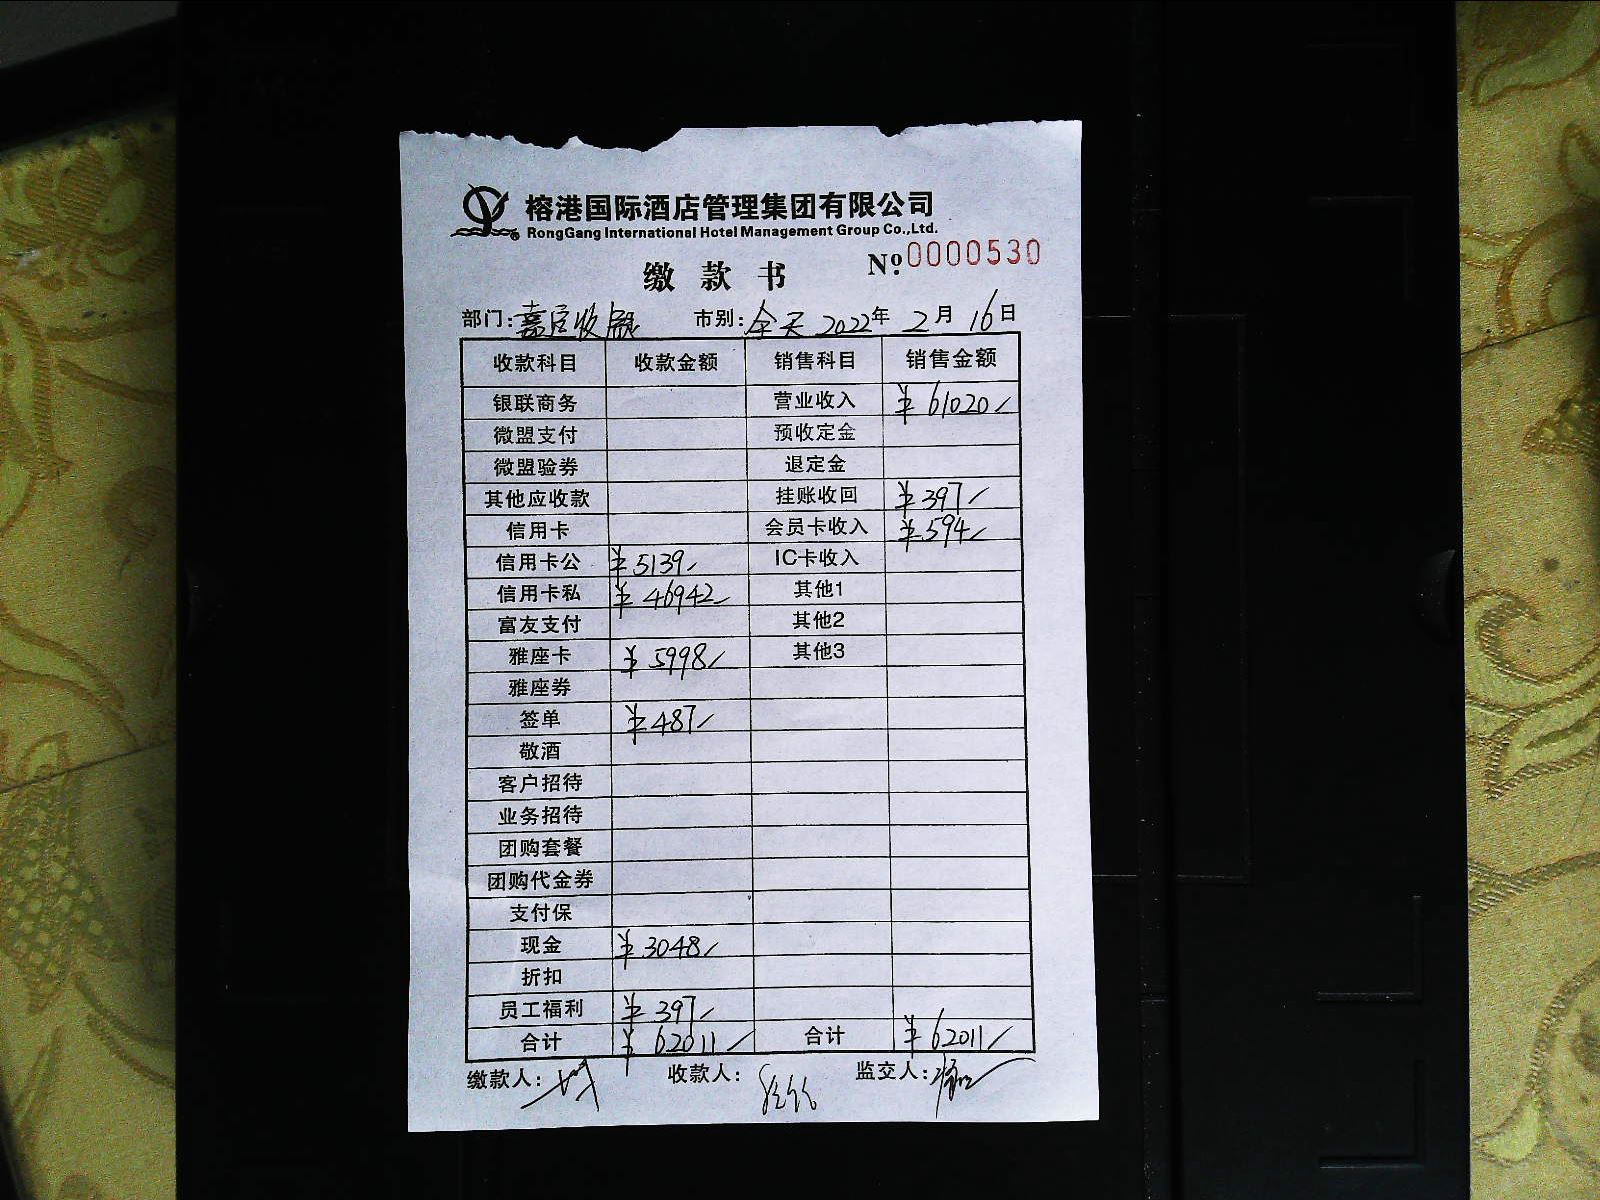 榕港国际酒店管理集团有限公司
RongGang International Hotel Management Group Co.,Ltd.
缴款书 Nº 0000530
部门: 市别:全天 2022年 2月 16日
收款科目 收款金额 销售科目 销售金额
银联商务 营业收入 ¥61020/
微盟支付 预收定金
微盟验券 退定金
其他应收款 挂账收回 ¥397/
信用卡 会员卡收入 ¥594/
信用卡公 ¥5139/ IC卡收入
信用卡私 ¥46942/ 其他1
富友支付 其他2
雅座卡 ¥5998/ 其他3
雅座券
签单 ¥487/
敬酒
客户招待
业务招待
团购套餐
团购代金券
支付保
现金 ¥3048/
折扣
员工福利 ¥397/
合计 ¥62011/ 合计 ¥62011/
缴款人: 收款人: 监交人: